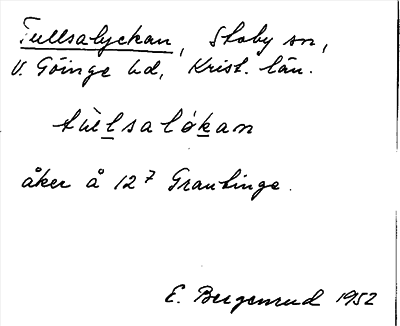 Tullsalyckan, Stoby sn,
V. Göinge hd, Krist. län.
tùlsalókan
åker å 12⁷ Grantinge.
E. Bergenrud 1952